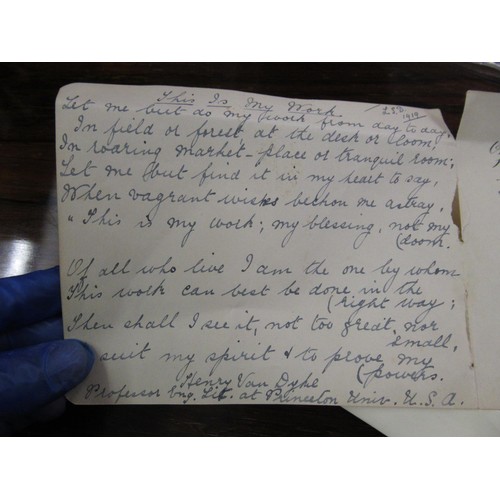 This Is My Work 22D 1919
Let me but do my work from day to day,
In field or forest at the desk or loom,
In roaring market-place or tranquil room;
Let me but find it in my heart to say,
When vagrant wishes beckon me astray,
"This is my work; my blessing, not my
(doom.
Of all who live I am the one by whom
This work can best be done in the
(right way;
Then shall I see it, not too great, nor
small,
suit my spirit & to prove my
(powers.
Henry Van Dyke
Professor Eng. Lit. at Princeton Univ. U.S.A.